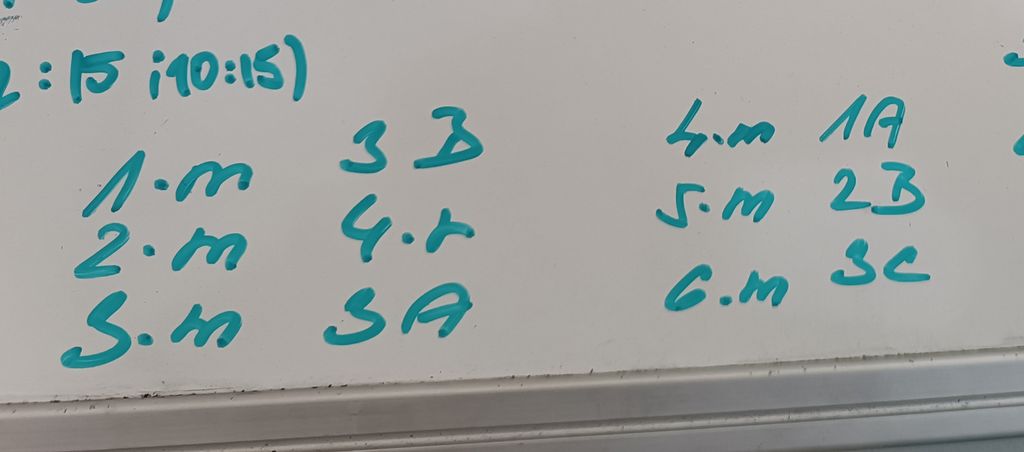 2:15 i 10:15)
1.m 3B
2.m 4.r
3.m 3A
4.m 1A
5.m 2B
6.m 3C